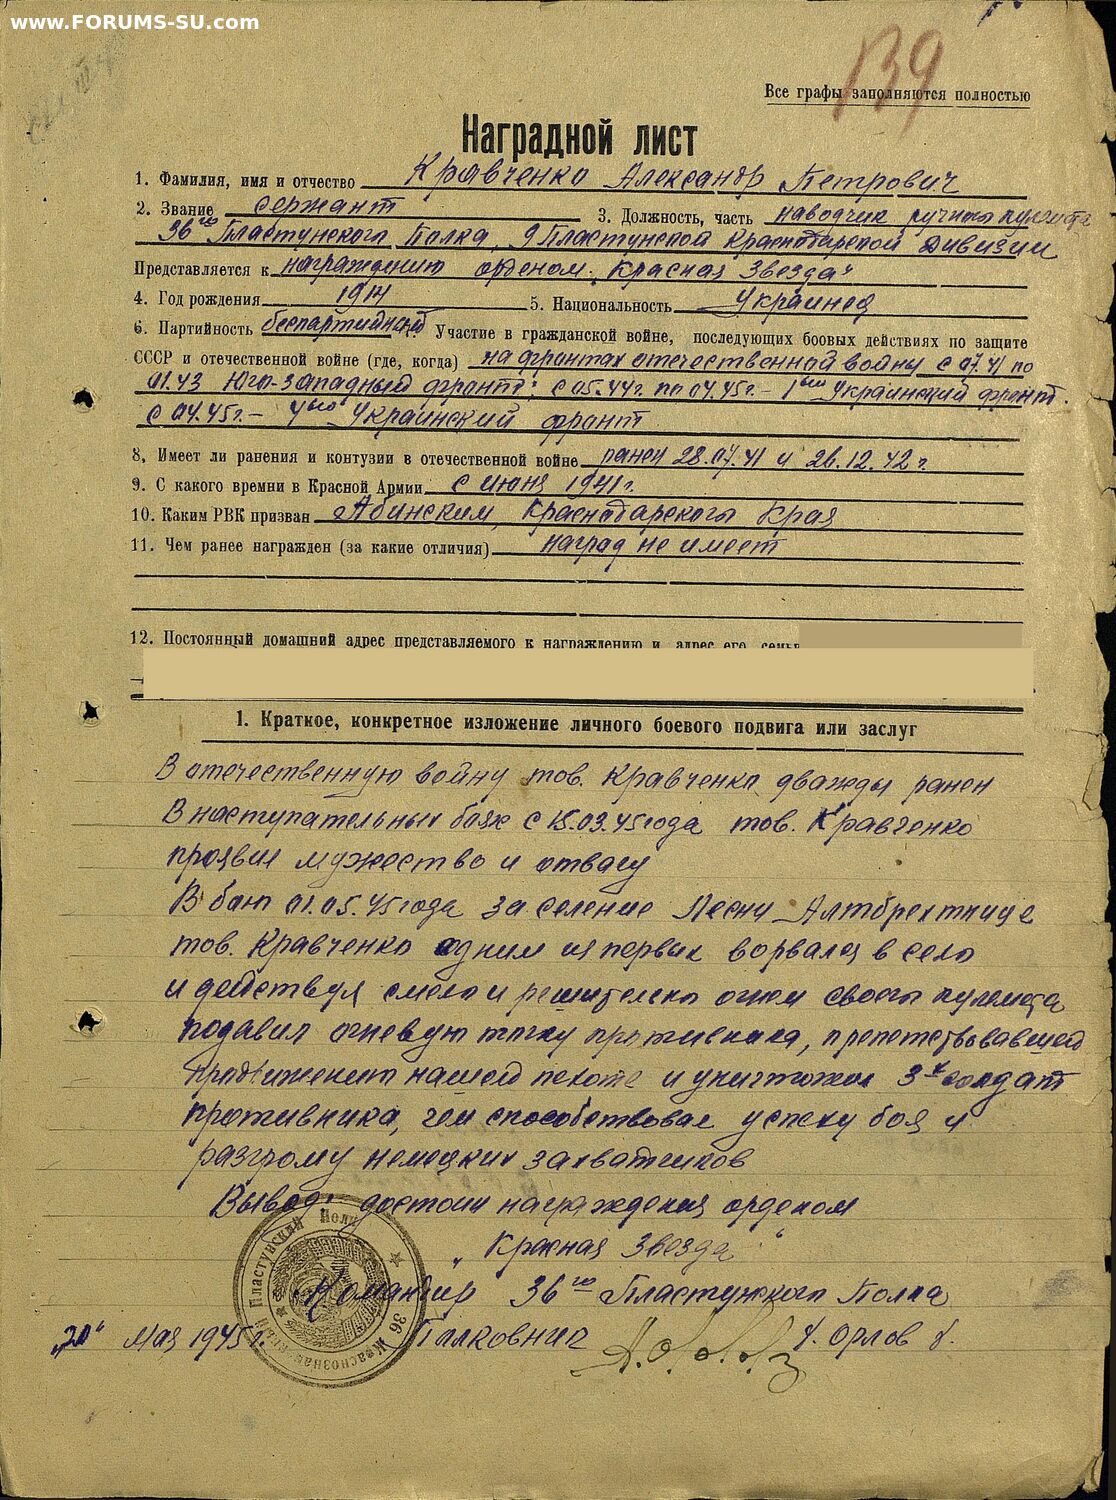 www.FORUMS-SU.com
139
Все графы заполняются полностью
Наградной лист
1. Фамилия, имя и отчество Кравченко Александр Петрович
2. Звание сержант 3. Должность, часть наводчик ручного пулемета
36го Пластунского Полка, 9 Пластунской Краснодарской Дивизии
Представляется к награждению орденом „Красная Звезда"
4. Год рождения 1914 5. Национальность Украинец
6. Партийность беспартийный Участие в гражданской войне, последующих боевых действиях по защите
СССР и отечественной войне (где, когда) на фронтах отечественной войны с 07.41 по
01.43 Юго-Западный фронт; с 05.44г. по 04.45г. - 1ый Украинский фронт.
с 04.45г. - 4ый Украинский фронт
8, Имеет ли ранения и контузии в отечественной войне ранен 28.07.41 и 26.12.42г.
9. С какого времни в Красной Армии с июня 1941г.
10. Каким РВК призван Абинским, Краснодарского Края
11. Чем ранее награжден (за какие отличия) наград не имеет
12. Постоянный домашний адрес представляемого к награждению и адрес его семьи
1. Краткое, конкретное изложение личного боевого подвига или заслуг
В отечественную войну тов. Кравченко дважды ранен
В наступательных боях с 15.03.45 года тов. Кравченко
проявил мужество и отвагу
В бою 01.05.45 года за селение
тов. Кравченко одним из первых ворвался в село
и действуя смело и решительно огнем своего пулемета
подавил огневую точку противника, препятствовавшей
продвижению нашей пехоте и уничтожил 3х солдат
противника, чем способствовал успеху боя и
разгрому немецких захватчиков
Вывод: достоин награждения орденом
„Красная Звезда"
Командир 36го Пластунского Полка
„20" мая 1945г. Полковник /. Орлов /.
36 Краснознаменный Пластунский Полк